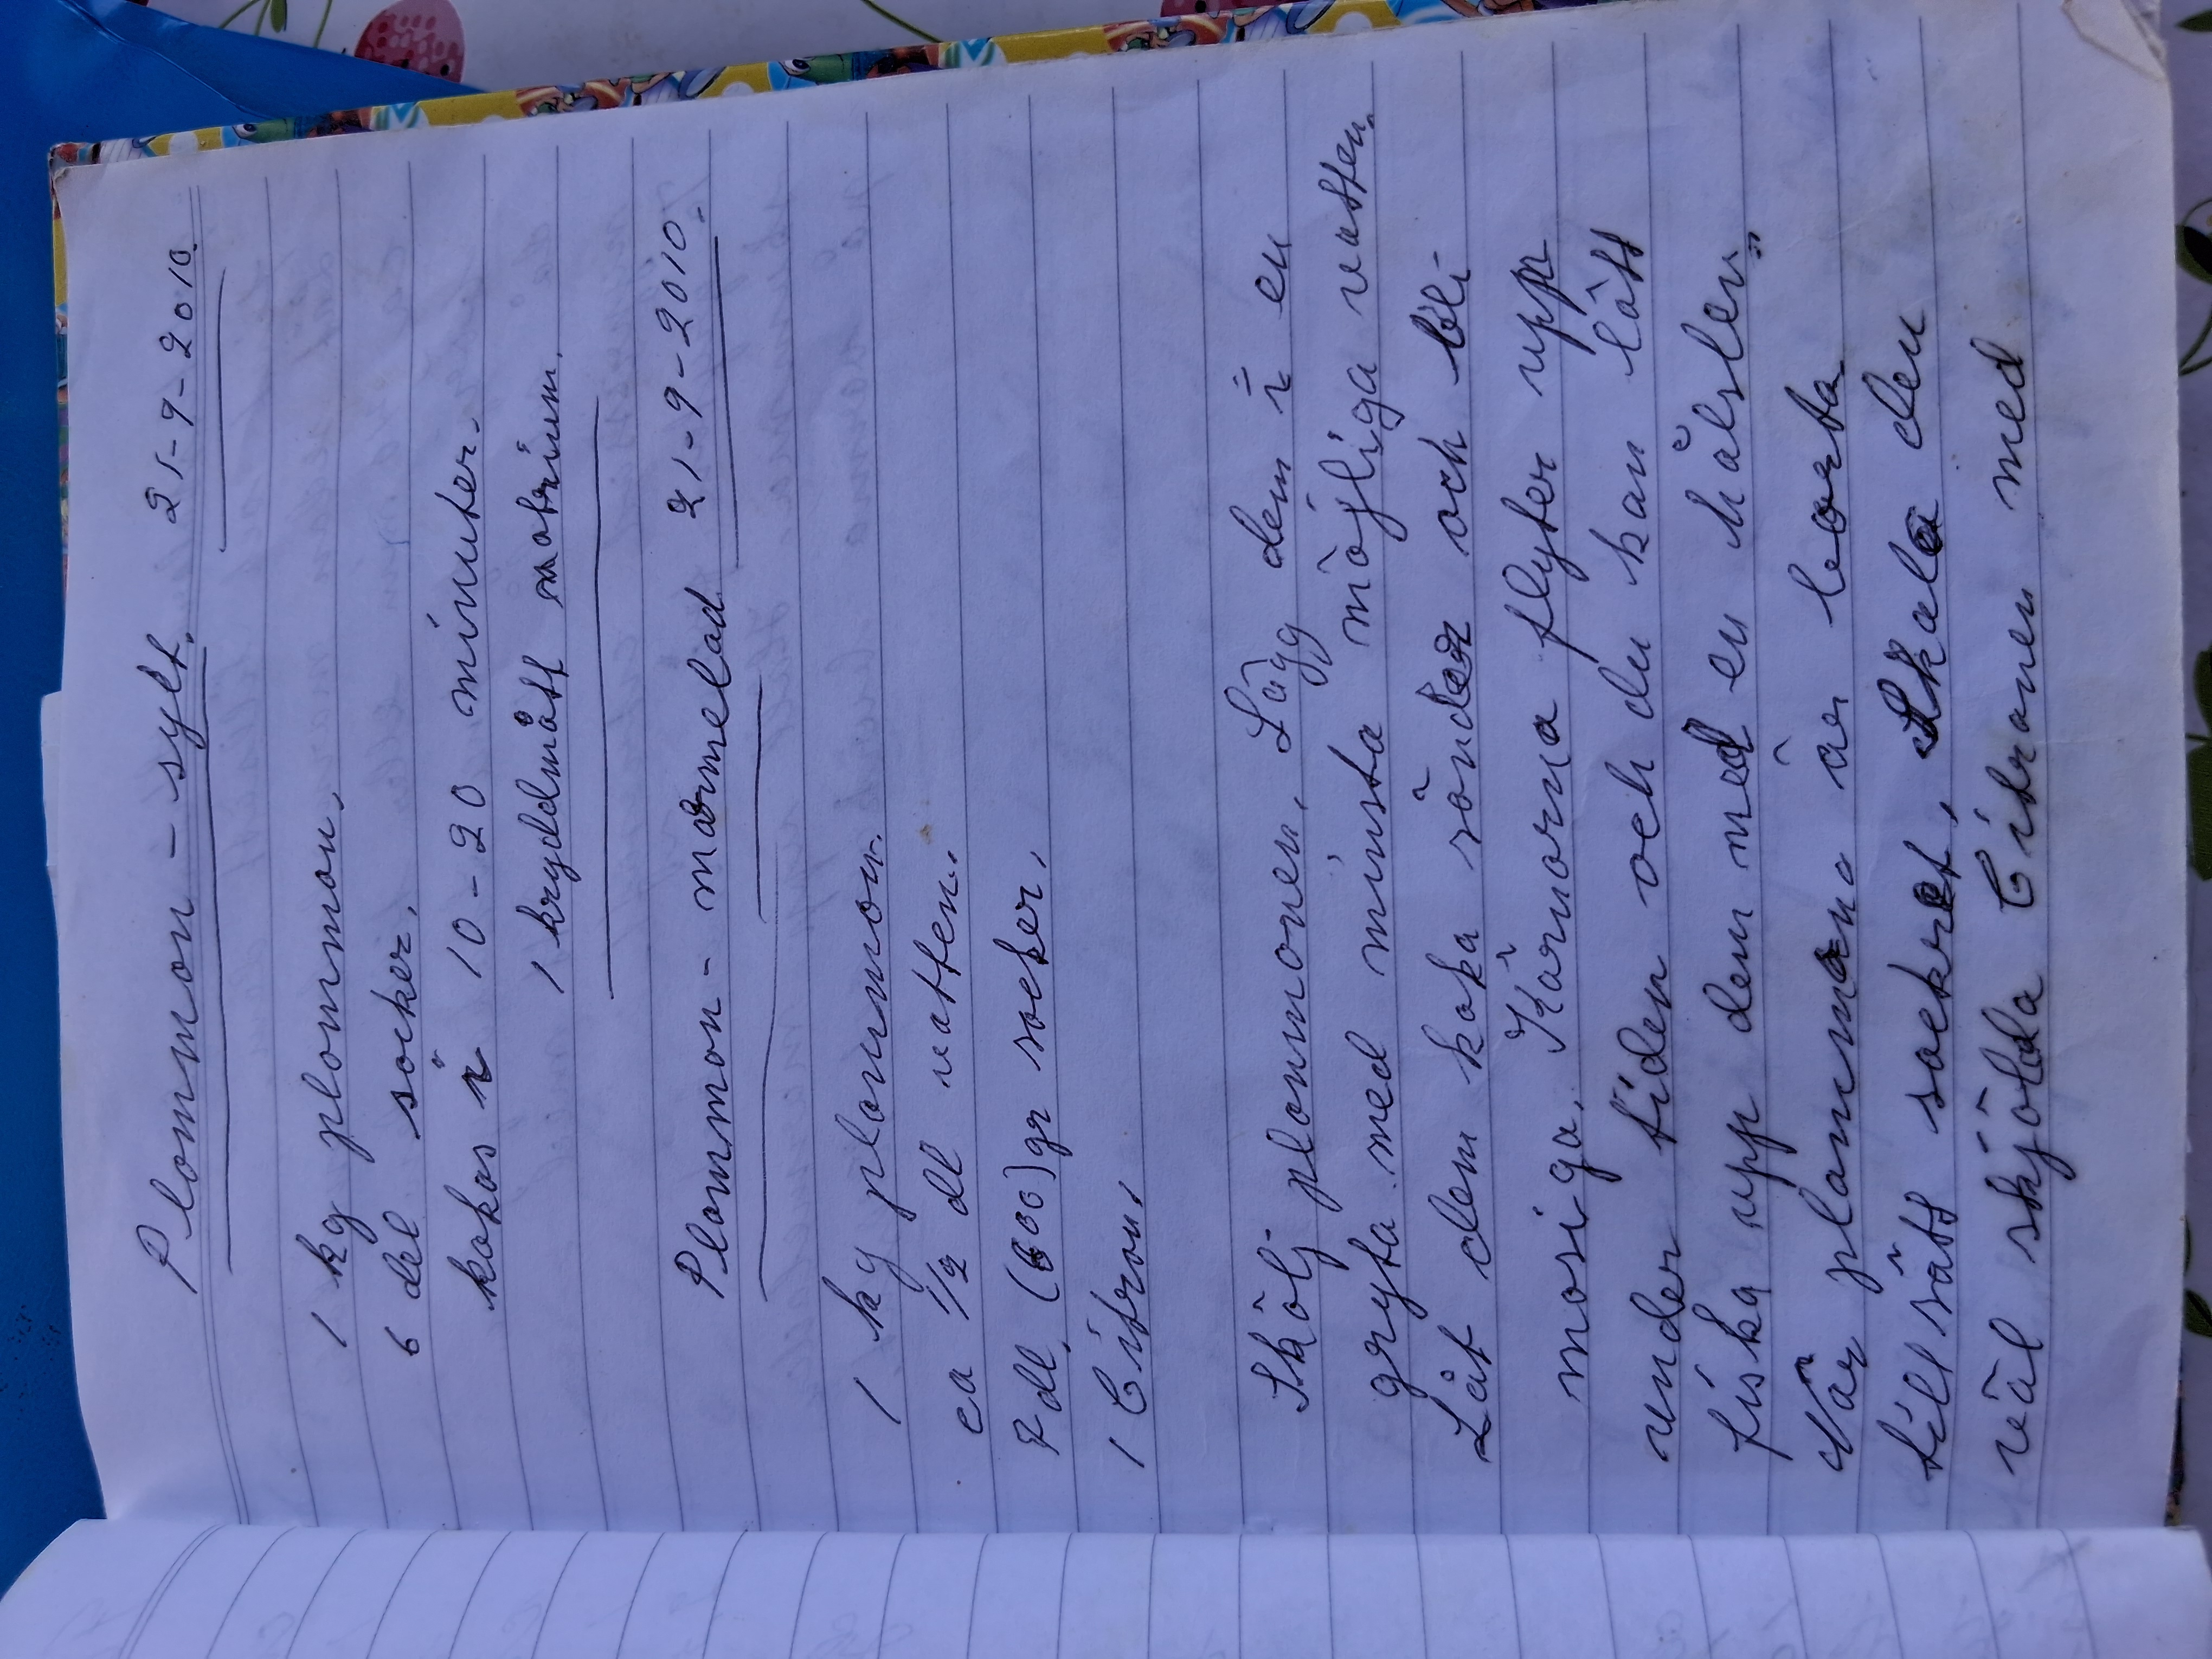 Plommon - sylt. 21-9-2010.
1 kg plommon.
6 del socker.
kokas i 10-20 minuter.
1 kryddmått natrium.
Plommon - marmelad 21-9-2010.
1 kg plommon.
ca 1/2 dl vatten.
7 dl. (600) gr socker.
1 Citron.
Skölj plommonen. Lägg dem i en
gryta med minsta möjliga vatten.
Låt dem koka sönder och bli
mosiga. Kärnorna flyter upp
under tiden och du kan lätt
fiska upp dem med en hålslev.
När plommon är borta
tillsätt sockret, skala den
väl skjölda Citronen med